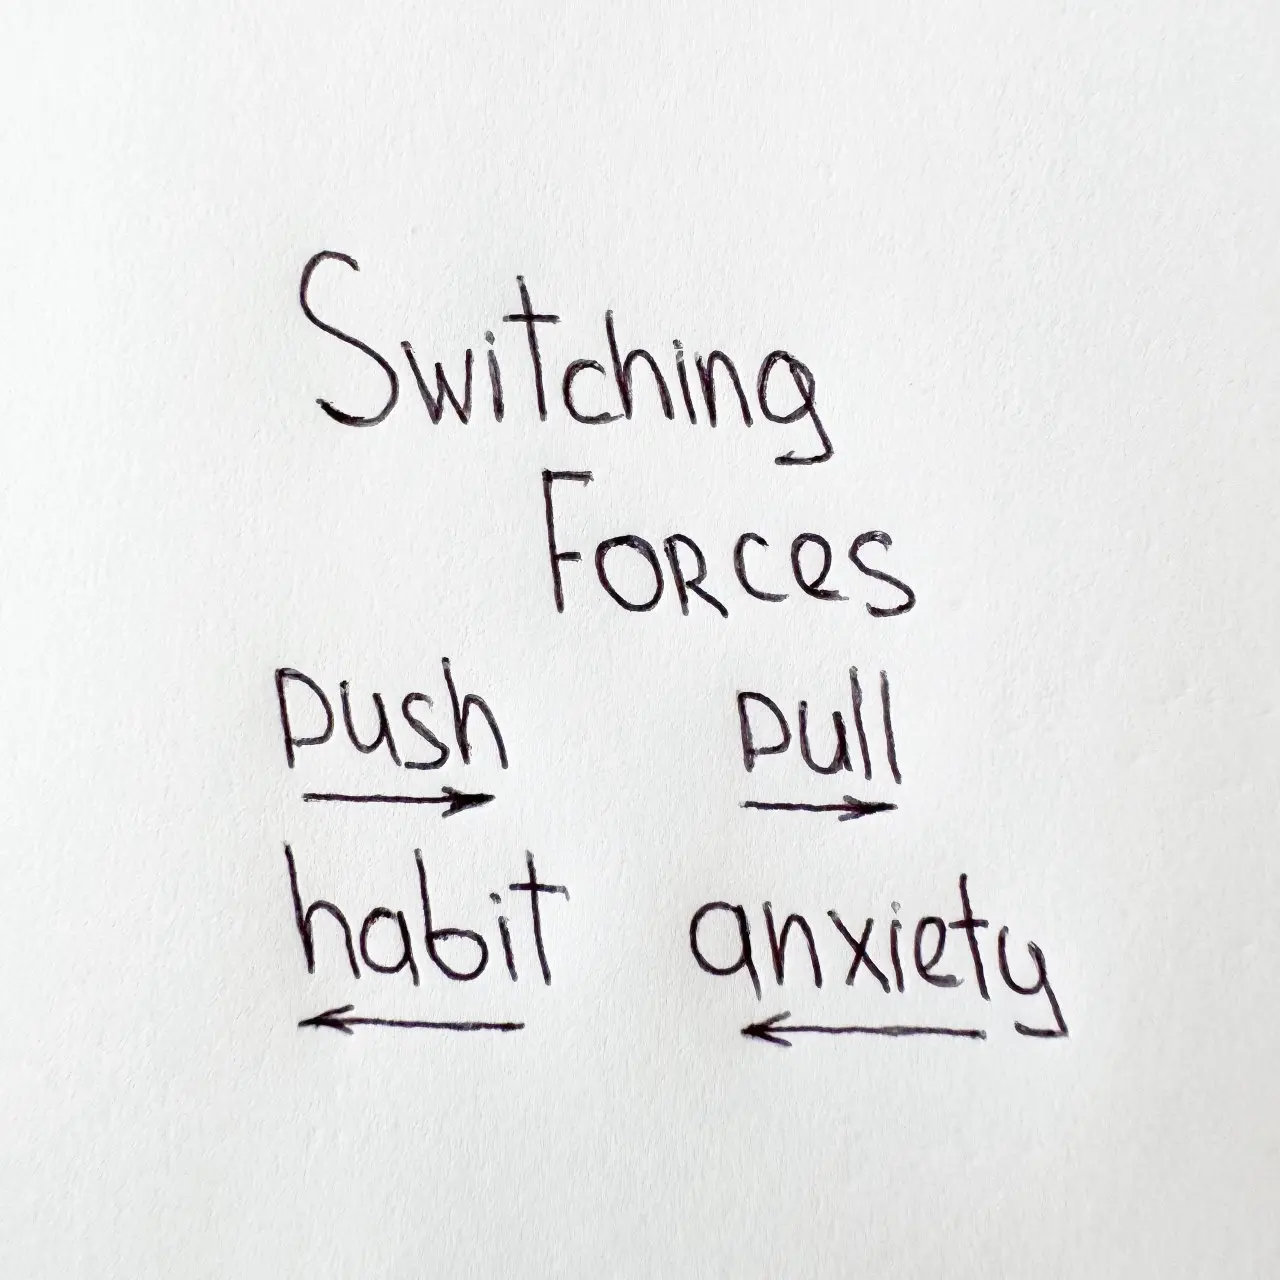 Switching
Forces
push pull
habit anxiety